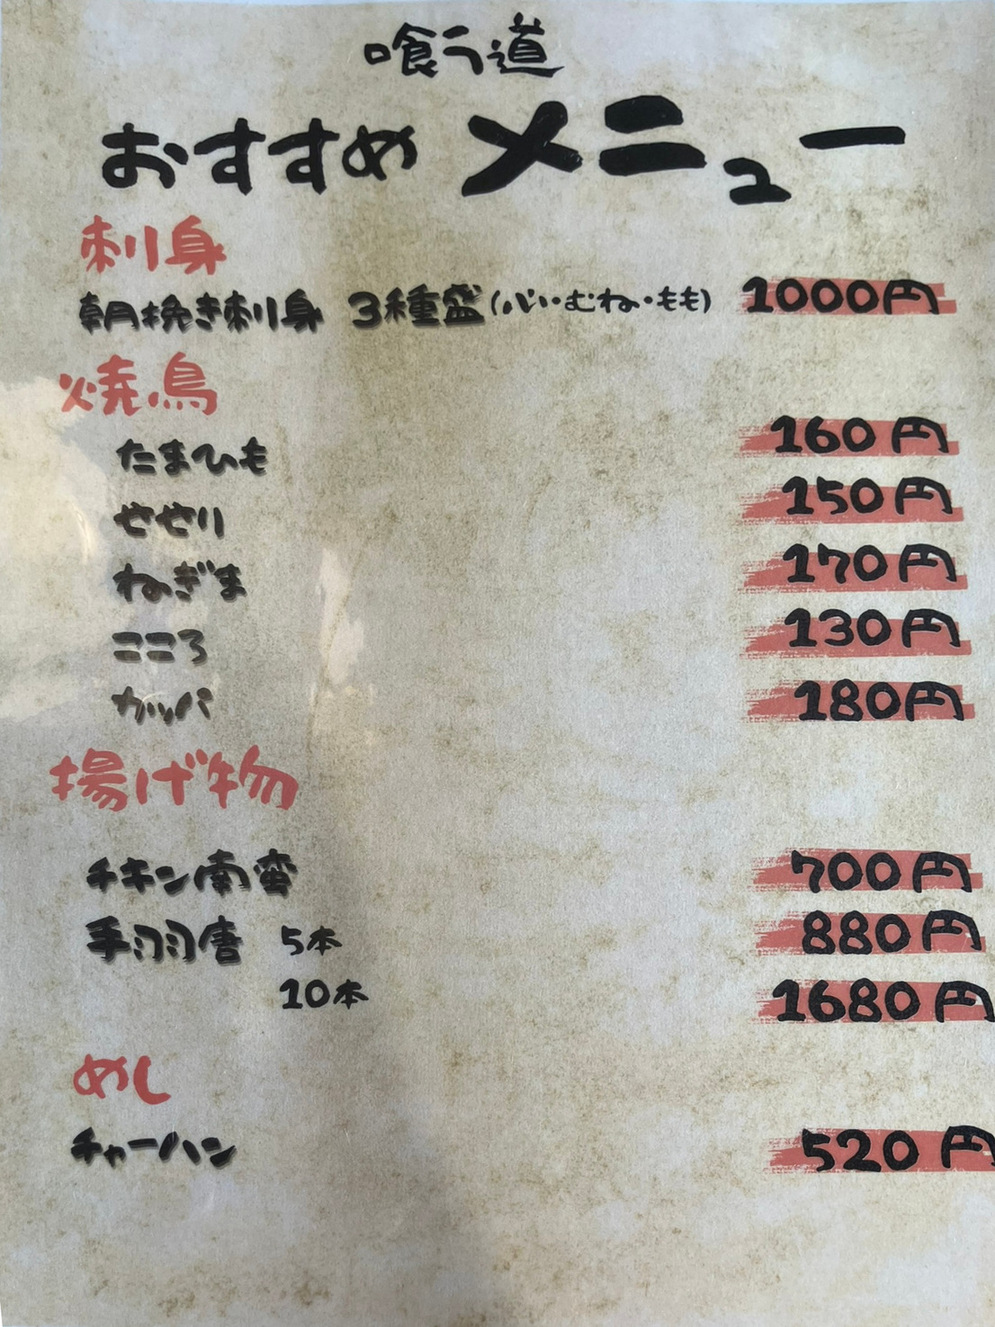 喰う道
おすすめ メニュー
刺身
朝挽き刺身 3種盛(心・むね・もも) 1000円
焼鳥
たまひも 160円
せせり 150円
ねぎま 170円
こころ 130円
カッパ 180円
揚げ物
チキン南蛮 700円
手羽唐 5本 880円
10本 1680円
めし
チャーハン 520円